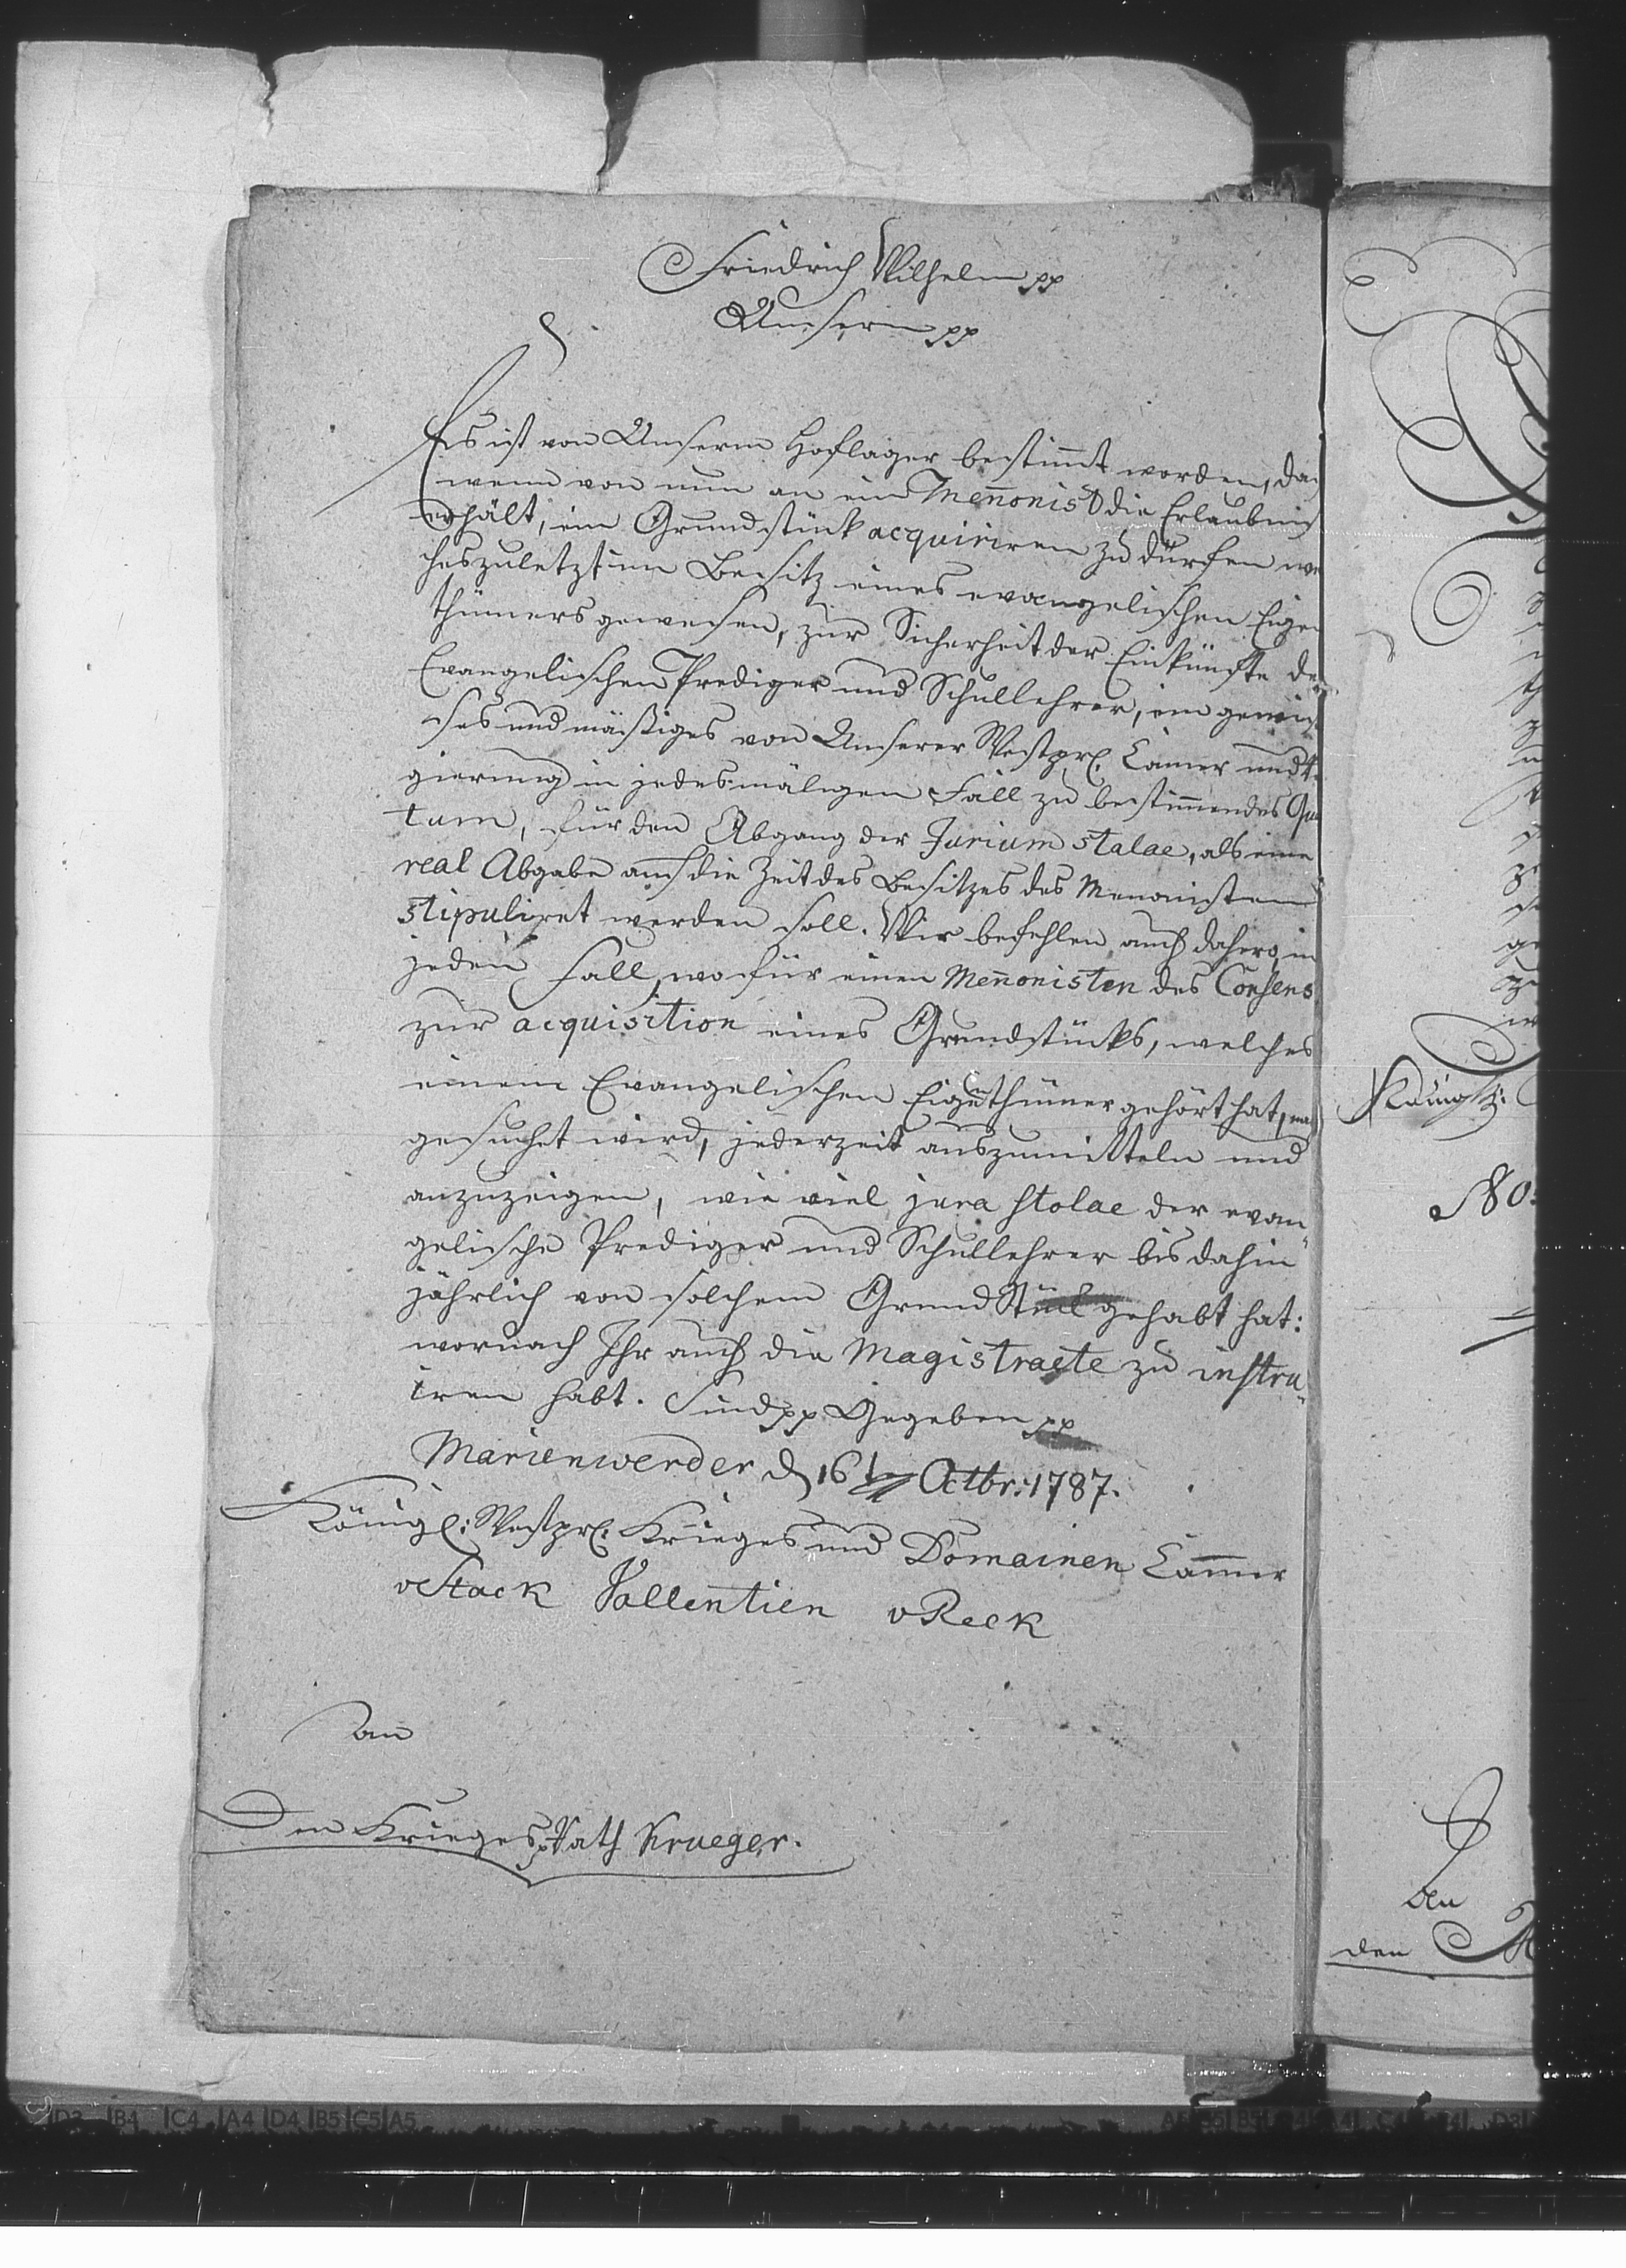 Friedrich Wilhelm pp
Unsern pp
Es ist von Unserm Hoflager bestimt worden, das
wenn von nun an ein Menonist die Erlaubnis
erhält, ein Grundstück acquiriren zu dürfen wel
ches zuletzt im Besitz eines evangelischen Eigen
thümers gewesen, zur Sicherheit der Einkünfte der
Evangelischen Prediger und Schullehrer, ein gewis
ses und mäßiges von Unserer Westpr. Camer und Re
gierung in jedesmaligen Fall zu bestimmendes Quan
tum, für den Abgang der Jurium stalae, als eine
real Abgabe auf die Zeit des Besitzes des Menonisten
stipuliret werden soll. Wir befehlen auch dahero, in
jeden Fall, wo für einen Menonisten des Consens
zur acquisition eines Grundstücks, welches
einem Evangelischen Eigenthümer gehört hat, nach
gesuchet wird, jederzeit auszumitteln und
anzuzeigen, wie viel jura stolae der evan
gelische Prediger und Schullehrer bis dahin
jährlich von solchem Grund Stück gehabt hat:
wornach Ihr auch die Magistraete zu instru
iren habt. Sind pp Gegeben pp
Marienwerder d 16t Octbr: 1787.
Königl: Westpr. Krieges und Domainen Camer
v Stack Vallentien v Reck
an
Den Krieges Rath Krueger.
Königl:
No:
An
den